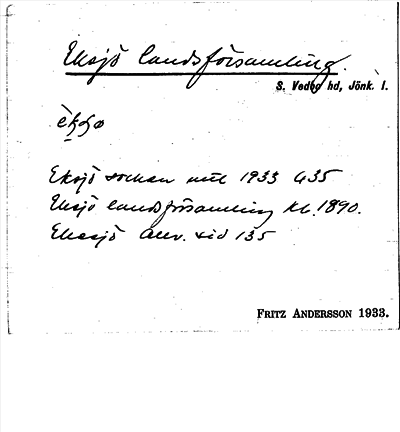 Eksjö landsförsamling.
S. Vedbo hd, Jönk. l.
Eksjö socken 1933 435
Eksjö landsförsamling Kb. 1890.
Ekesjö Allv. sid 135
FRITZ ANDERSSON 1933.